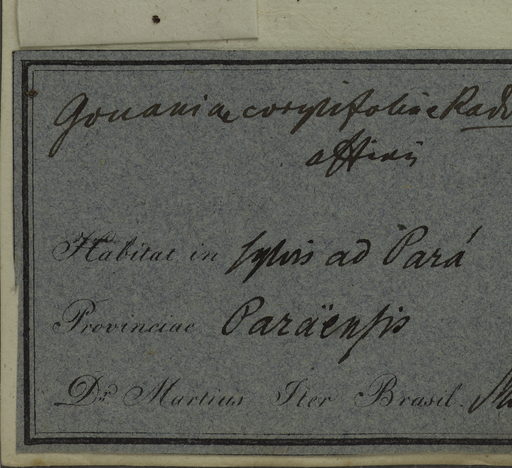 Gouaniae corylifoliae Radd
affinis
Habitat in sylvis ad Pará
Provinciae Paraënsis
Dr. Martius Iter Brasil.